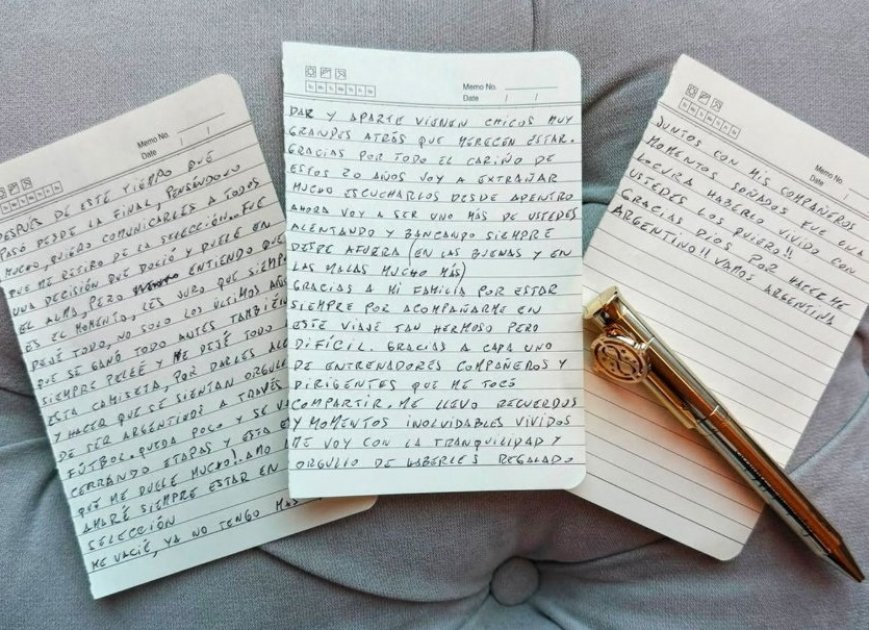 Memo No.
Date / /
DESPUÉS DE ESTE TIEMPO QUE
PASÓ DESDE LA FINAL, PENSÁNDOLO
MUCHO, QUIERO COMUNICARLES A TODOS
QUE ME RETIRO DE LA SELECCIÓN. FUE
UNA DECISIÓN QUE DOLIÓ Y DUELE EN
EL ALMA, PERO ENTIENDO QUE
ES EL MOMENTO, LES JURO QUE SIEMPRE
DEJÉ TODO, NO SOLO LOS ÚLTIMOS AÑOS
QUE SE GANÓ TODO ANTES TAMBIÉN
SIEMPRE PELEÉ Y ME DEJÉ TODO
ESTA CAMISETA, POR DARLES
Y HACER QUE SE SIENTAN
DE SER ARGENTINOS A TRAVÉS
FÚTBOL. QUEDA POCO Y SE VA
CERRANDO ETAPAS Y ESTA
QUE ME DUELE MUCHO! AMO
AMARÉ SIEMPRE ESTAR EN
SELECCIÓN
ME VACIÉ, YA NO TENGO MÁS
Memo No.
Date / /
DAR Y APARTE VIENEN CHICOS MUY
GRANDES ATRÁS QUE MERECEN ESTAR.
GRACIAS POR TODO EL CARIÑO DE
ESTOS 20 AÑOS VOY A EXTRAÑAR
MUCHO ESCUCHARLOS DESDE ADENTRO
AHORA VOY A SER UNO MÁS DE USTEDES
ALENTANDO Y BANCANDO SIEMPRE
DESDE AFUERA (EN LAS BUENAS Y EN
LAS MALAS MUCHO MÁS)
GRACIAS A MI FAMILIA POR ESTAR
SIEMPRE POR ACOMPAÑARME EN
ESTE VIAJE TAN HERMOSO PERO
DIFÍCIL GRACIAS A CADA UNO
DE ENTRENADORES COMPAÑEROS Y
DIRIGENTES QUE ME TOCÓ
COMPARTIR. ME LLEVO RECUERDOS
Y MOMENTOS INOLVIDABLES VIVIDOS
ME VOY CON LA TRANQUILIDAD Y
ORGULLO DE HABERLES REGALADO
Memo No.
Date /
JUNTOS CON MIS COMPAÑEROS
MOMENTOS SOÑADOS FUE UNA
LOCURA HABERLO VIVIDO CON
USTEDES LOS QUIERO!!
GRACIAS DIOS POR HACERME
ARGENTINO!! VAMOS ARGENTINA